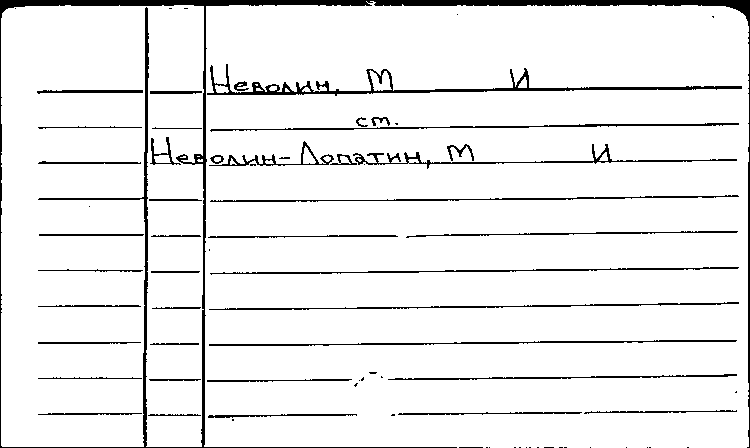 Неволин, М И
ст.
Неволин-Лопатин, М И